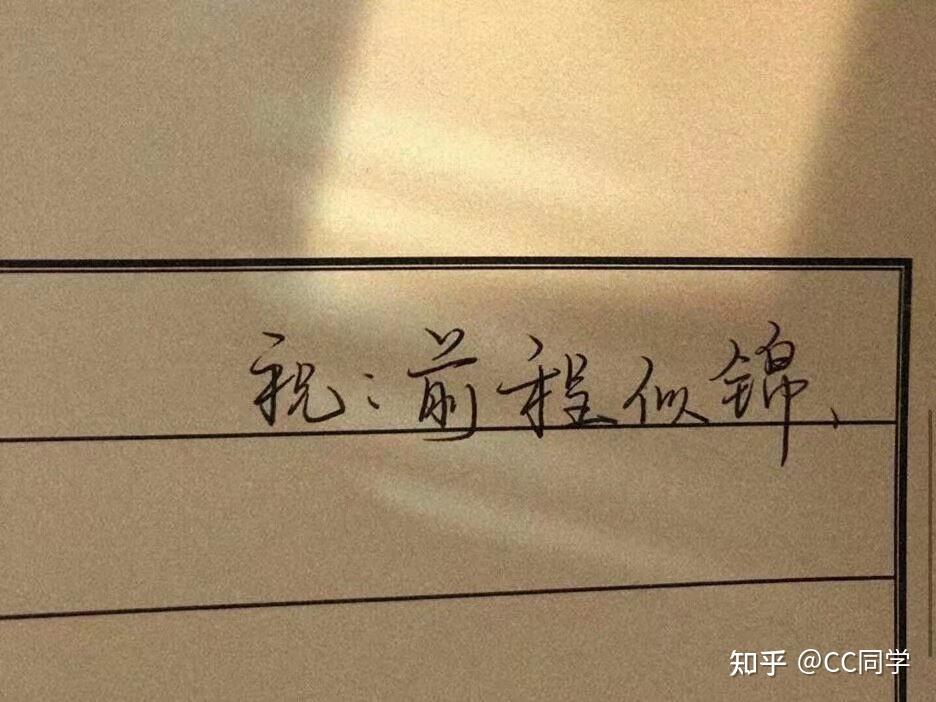 祝：前程似锦、
知乎 @CC同学